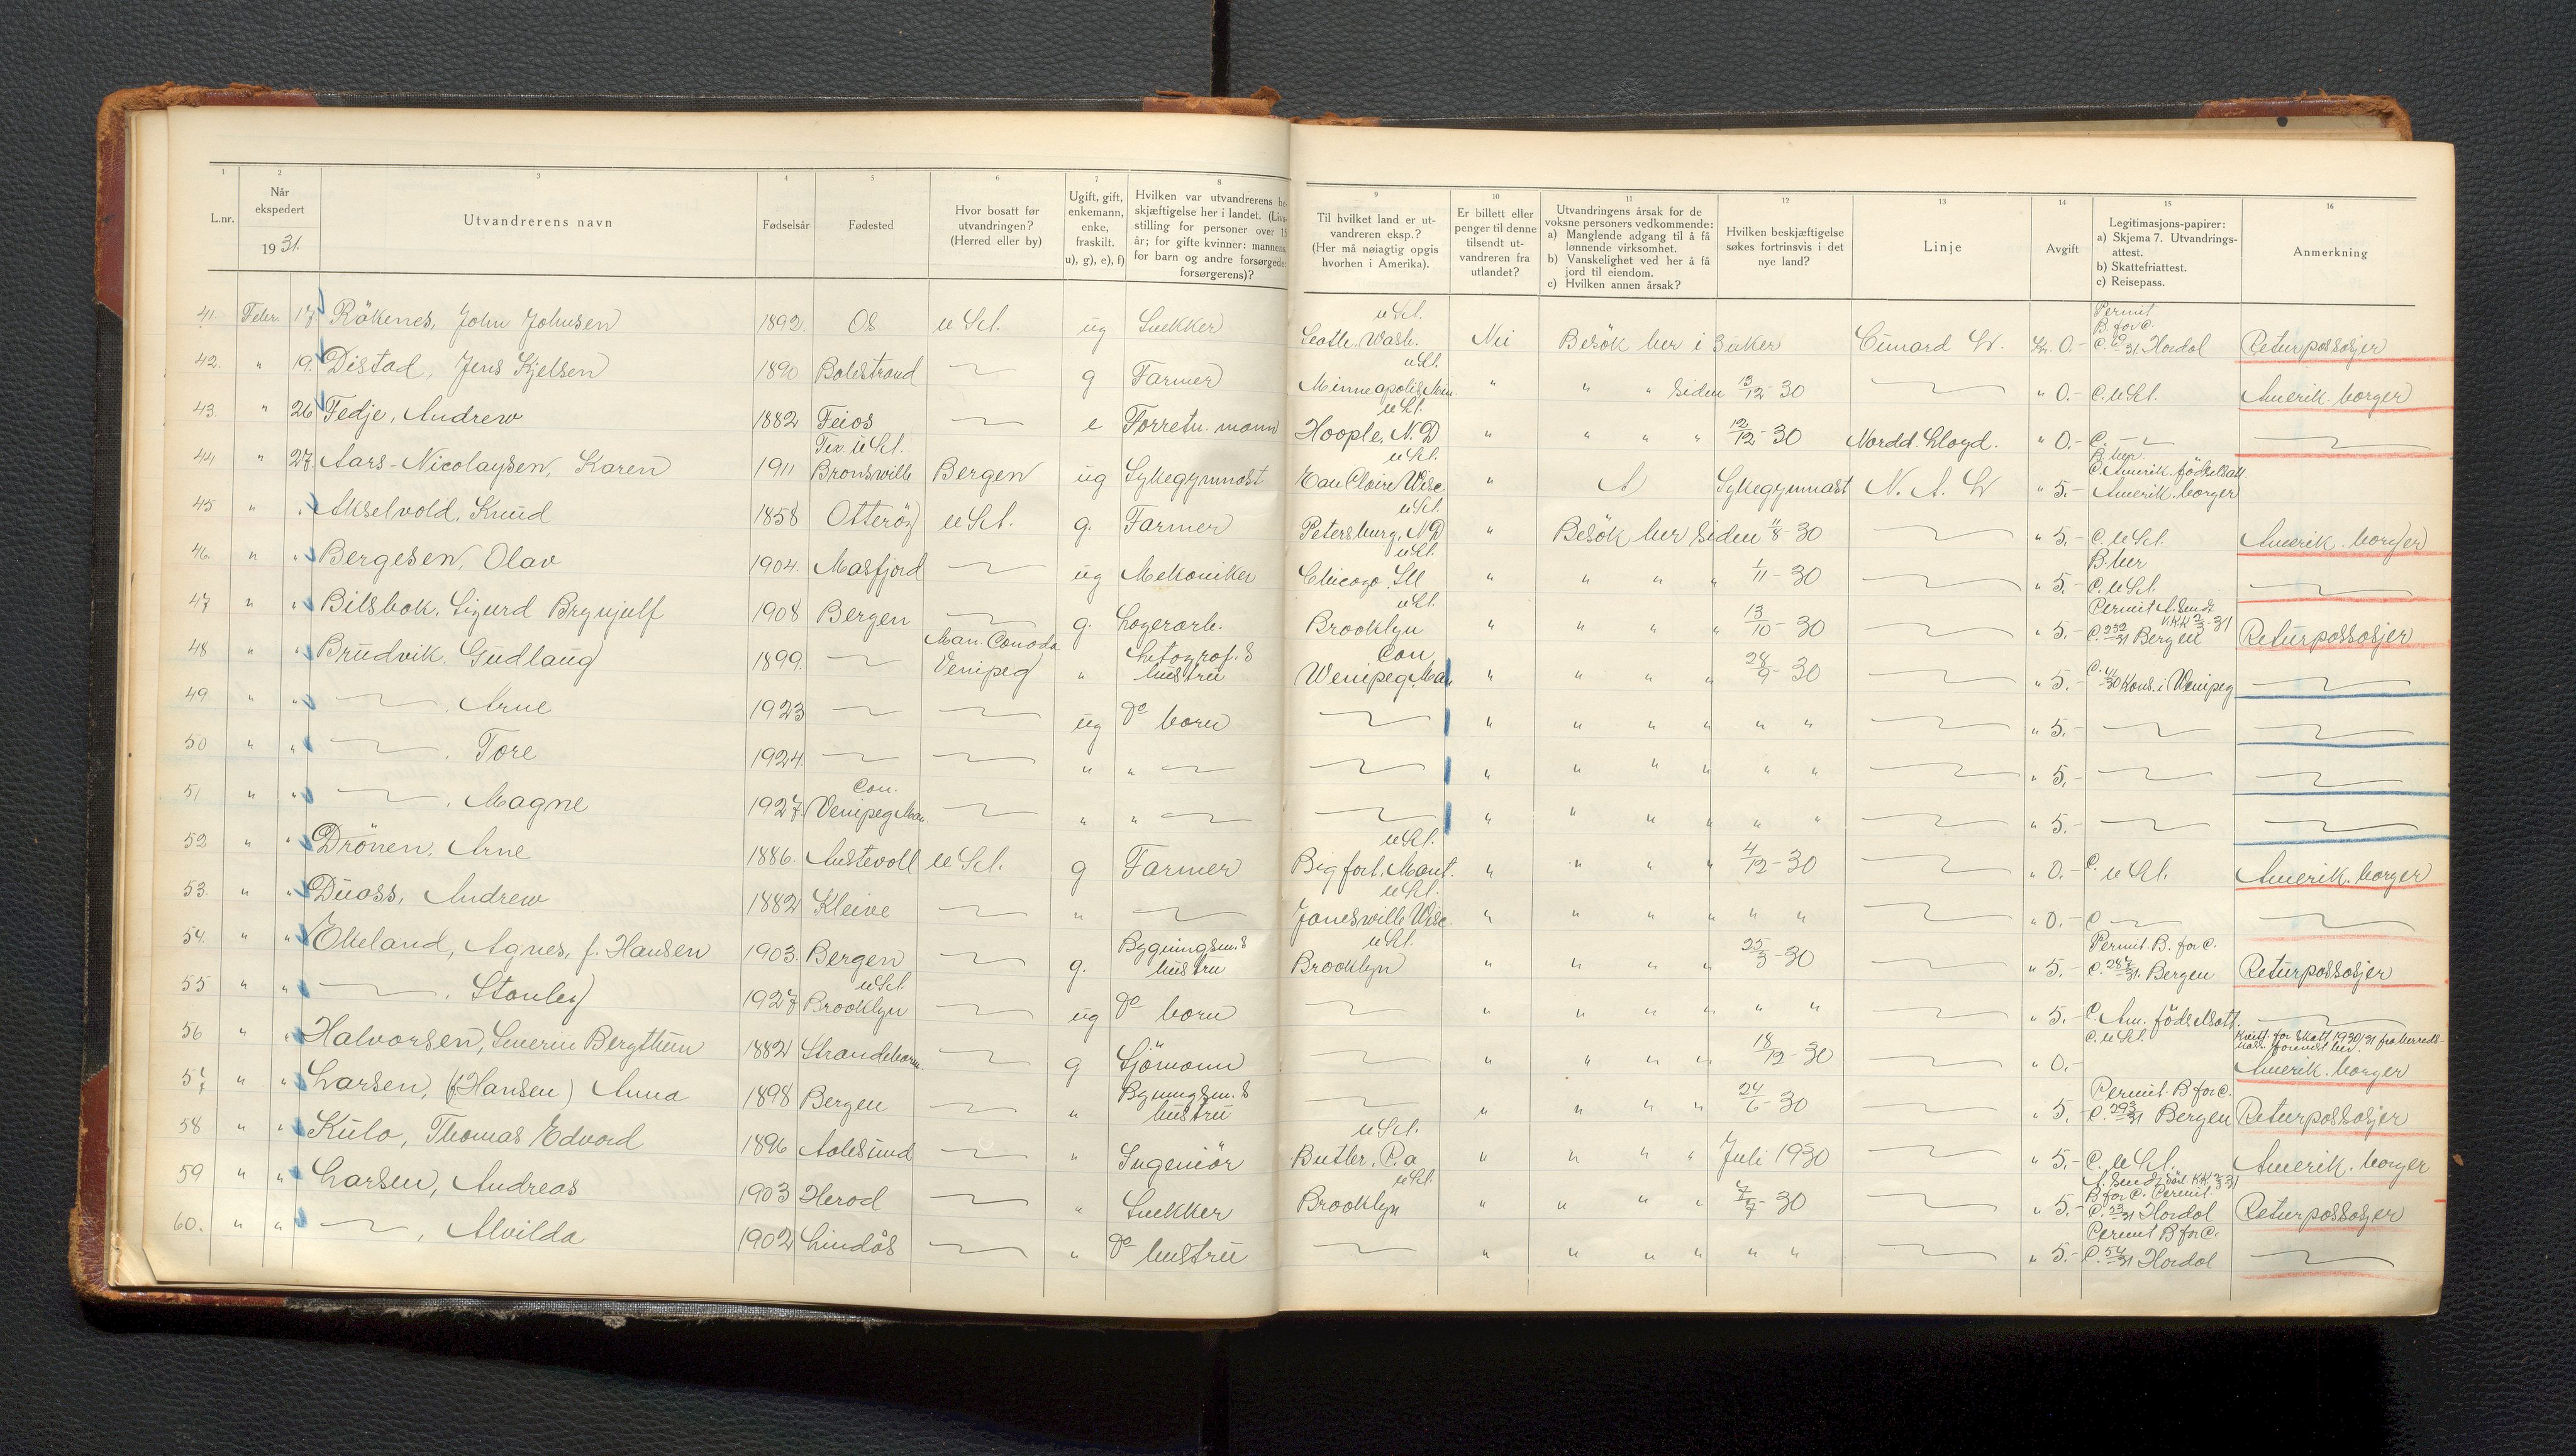 1 2 3 4 5 6 7 8 9 10 11 12 13 14 15 16
L.nr.
Når ekspedert 1931.
Utvandrerens navn
Fødselsår
Fødested
Hvor bosatt før utvandringen? (Herred eller by)
Ugift, gift, enkemann, enke, fraskilt. u), g), e), f)
Hvilken var utvandrerens beskjæftigelse her i landet. (Livsstilling for personer over 15 år; for gifte kvinner: mannens, for barn og andre forsørgede: forsørgerens)?
Til hvilket land er utvandreren eksp.? (Her må nøiagtig opgis hvorhen i Amerika).
Er billett eller penger til denne tilsendt utvandreren fra utlandet?
Utvandringens årsak for de voksne personers vedkommende:
a) Manglende adgang til å få lønnende virksomhet.
b) Vanskelighet ved her å få jord til eiendom.
c) Hvilken annen årsak?
Hvilken beskjæftigelse søkes fortrinsvis i det nye land?
Linje
Avgift
Legitimasjons-papirer:
a) Skjema 7. Utvandringsattest.
b) Skattefriattest.
c) Reisepass.
Anmerkning
41. Febr. 17 Råkenes, John Johnsen 1892. Os U St. ug Snekker U St. Seatle, Wash. Nei Besök her i 3 uker Cunard L. Kr. 0.- Permit B. for C. C. 31 Hordal Returpassasjer
42. " 19. Distad, Jens Kjelsen 1890 Balestrand g Farmer U St. Minneapolis, Min. " " " siden 13/12-30 " 0.- C. U St. Amerik. borger
43. " 26 Fedje, Andrew 1882 Feios e Forretn. mann U St. Hoople, N.D " " " " 12/12-30 Nordd. Lloyd. " 0.- C.
44 " 27. Aars-Nicolaysen, Karen 1911 Tex. U St. Bronsville Bergen ug Sykegymnast U St. Eau Claire Wisc. " A Sykegymnast N. A. L " 5.- C. Amerik. födselsatt. Amerik. borger
45 " " Akselvold, Knud 1858 Otteröy U St. g. Farmer U St. Petersburg, N D " Besök her siden 11/8-30 " 5.- C. U St. Amerik. borger
46. " " Bergesen, Olav 1904. Masfjord ug Mekaniker U St. Chicago, Ill " " " " 1/11-30 " 5.- B. her C. U St.
47 " " Bilsbak, Sigurd Brynjulf 1908 Bergen g. Lagerarb. U St. Brooklyn " " " " 13/10-30 " 5.- Permit C. 232/31 Bergen Returpassasjer
48 " " Brudvik, Gudlaug 1899. Man. Canada Venipeg " Litograf.s hustru Can Wenipeg, Man " " " " 28/9-30 " 5.- C. 30 Kons. i Wenipeg
49 " " , Arne 1923 ug do barn " " " " " " " 5.-
50 " " , Tore 1924. " " " " " " " " " 5.-
51 " " , Magne 1927. Can. Venipeg Man. " " " " " " " " " 5.-
52 " " Drönen, Arne 1886. Austevoll U St. g Farmer U St. Big fort, Mont. " " " " 4/12-30 " 0.- C. U St. Amerik. borger
53. " " Duass, Andrew 1882 Kleive " U St. Janesville Wisc. " " " " " " " 0.- C
54. " " Ekeland, Agnes, f. Hansen 1903. Bergen g. Bygningsm.s hustru U St. Brooklyn " " " " 25/3-30 " 5.- Permit. B. for C. C. 287/31. Bergen Returpassasjer
55 " " , Stanley 1927 U St. Brooklyn ug do barn " " " " " " " 5.- C. Am. födselsatt.
56 " " Halvorsen, Severin Bergthun 1882 Strandebarm g Sjömann " " " " 18/12-30 " 0.- C. U St. Kvitt. for skatt 1930/31 fra herredskass. forevist her. Amerik. borger
57 " " Larsen, (f. Hansen) Anna 1898 Bergen " Bygningsm.s hustru " " " " 24/6-30 " 5.- Permit. B for C. C. 293/31 Bergen Returpassasjer
58 " " Kulo, Thomas Edvard 1896 Aalesund " Ingeniör U St. Butler, P.a " " " " Juli 1930 " 5.- C. U St. Amerik. borger
59 " " Larsen, Andreas 1903 Herad " Snekker U St. Brooklyn " " " " 7/7-30 " 5.- B for C. Permit. C. 53/31 Hordal Returpassasjer
60. " " , Alvilda 1902 Lindås " do hustru " " " " " " " 5.- Permit B for C. C. 54/31 Hordal